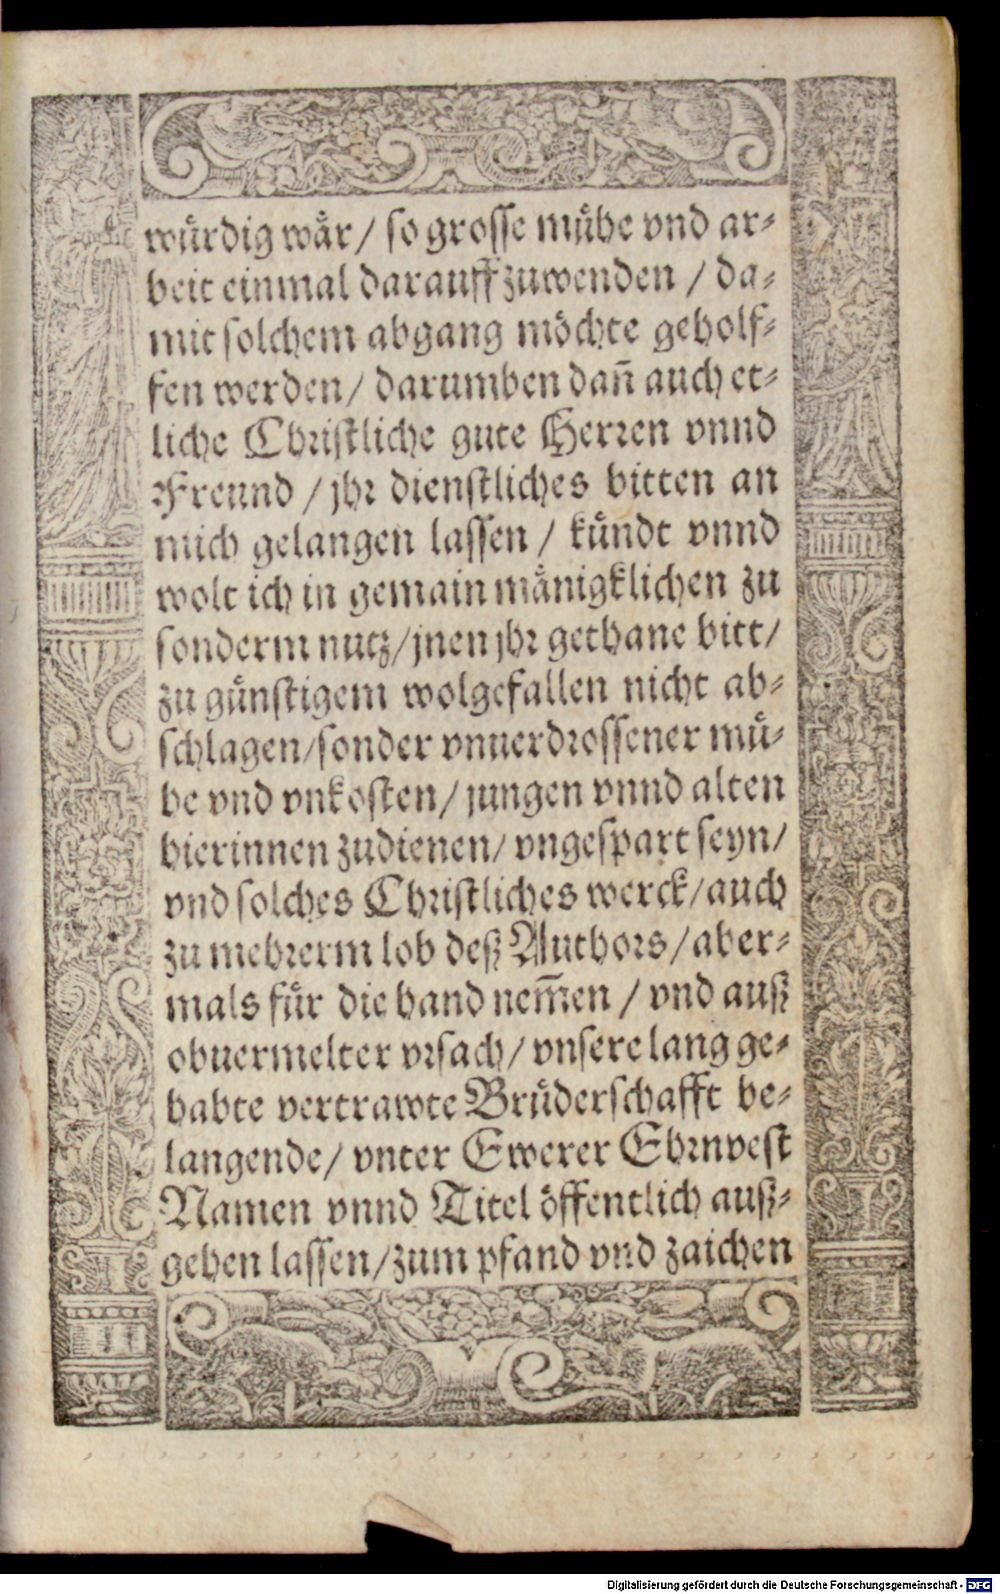 wuͤrdig waͤr / so grosse muͤhe vnd ar⸗
beit einmal darauff zuwenden / da⸗
mit solchem abgang moͤchte geholf⸗
fen werden / darumben dañ auch et⸗
liche Christliche gute Herren vnnd
Freund / jhr dienstliches bitten an
mich gelangen lassen / kuͤndt vnnd
wolt ich in gemain maͤnigklichen zu
sonderm nutz / jnen jhr gethane bitt /
zu guͤnstigem wolgefallen nicht ab⸗
schlagen / sonder vnuerdrossener muͤ⸗
he vnd vnkosten / jungen vnnd alten
hierinnen zudienen / vngespart seyn /
vnd solches Christliches werck / auch
zu mehrerm lob deß Authors / aber⸗
mals fuͤr die hand nem̃en / vnd auß
obuermelter vrsach / vnsere lang ge⸗
habte vertrawte Bruͤderschafft be⸗
langende / vnter Ewerer Ehrnvest
Namen vnnd Titel oͤffentlich auß⸗
gehen lassen / zum pfand vnd zaichen
Digitalisierung gefördert durch die Deutsche Forschungsgemeinschaft - DFG